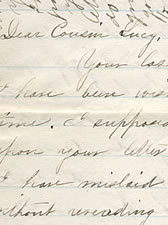 Dear Cousin Lucy,
Your las
I have been wai
time. I suppose
upon your letter
I have mislaid
without rereading